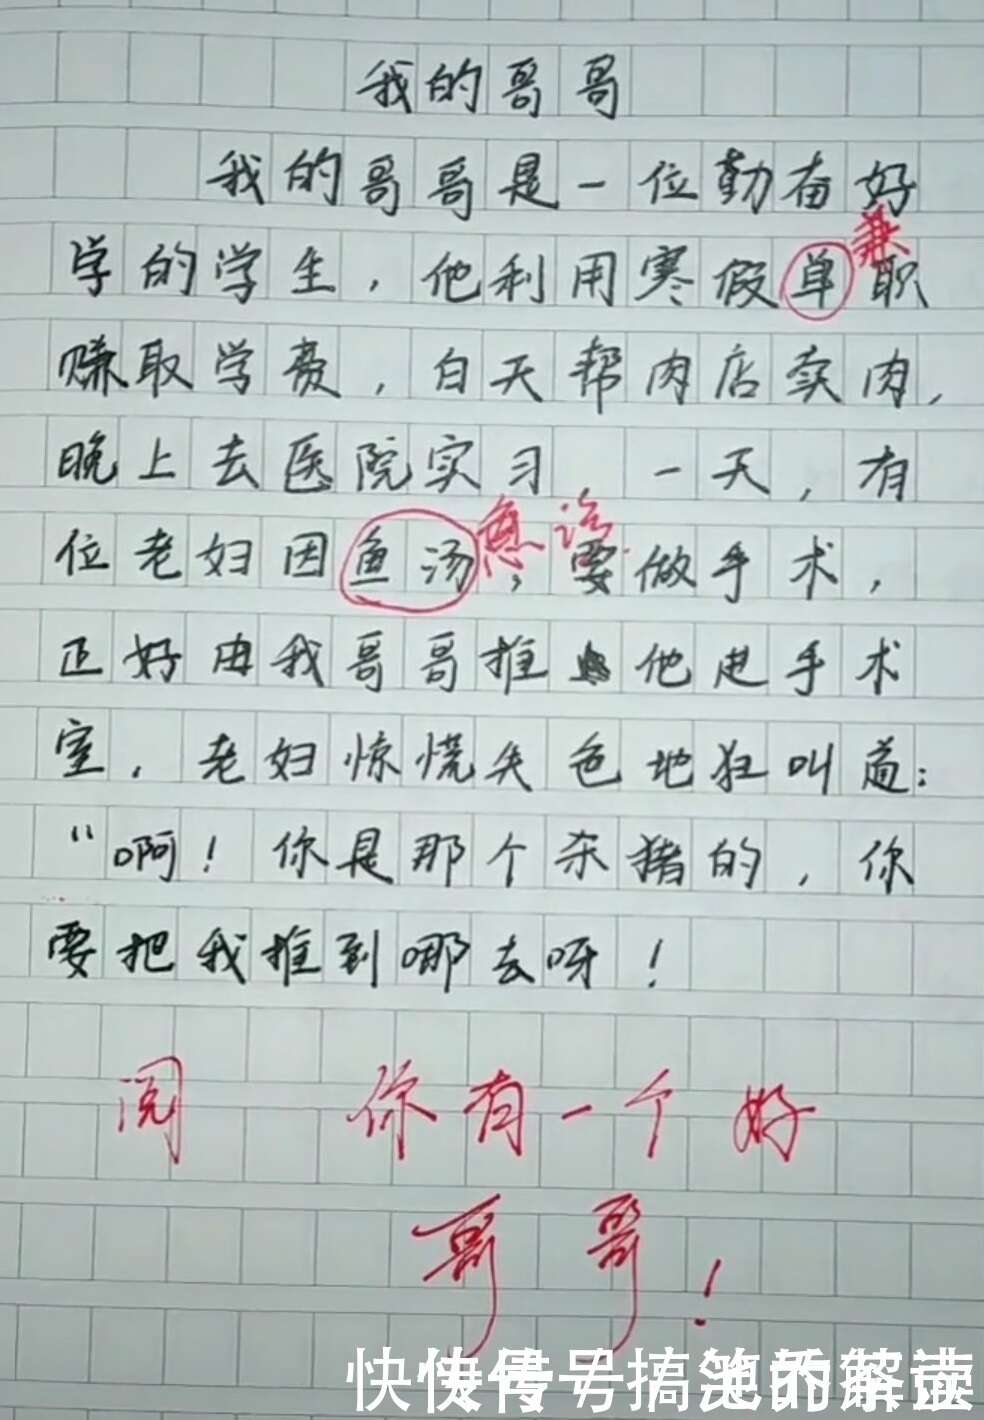 我的哥哥
我的哥哥是一位勤奋好
兼
学的学生，他利用寒假单职
赚取学费，白天帮肉店卖肉，
晚上去医院实习，一天，有
急诊
位老妇因鱼汤，要做手术，
正好由我哥哥推他进手术
室，老妇惊慌失色地狂叫道：
“啊！你是那个杀猪的，你
要把我推到哪去呀！
阅 你有一个好
哥哥！